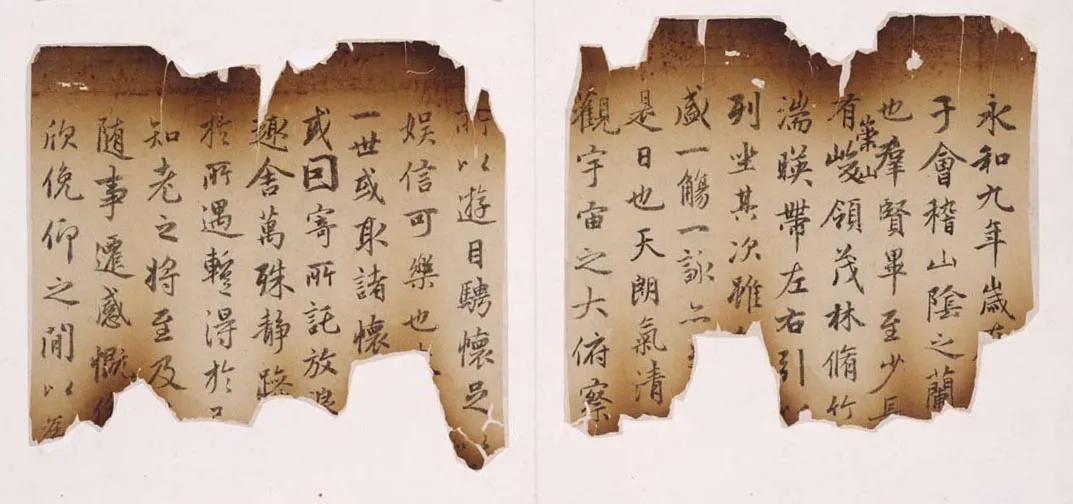 永和九年歲
于會稽山陰之蘭
也羣賢畢至少長
有崇山峻領茂林脩竹
湍暎帶左右引以
列坐其次雖
盛一觴一詠亦
是日也天朗氣清
觀宇宙之大俯察
所以遊目騁懷足以
娛信可樂也
一世或取諸懷
或因寄所託放浪
趣舍萬殊靜躁
於所遇暫得於
知老之將至及
隨事遷感慨係
欣俛仰之閒以為